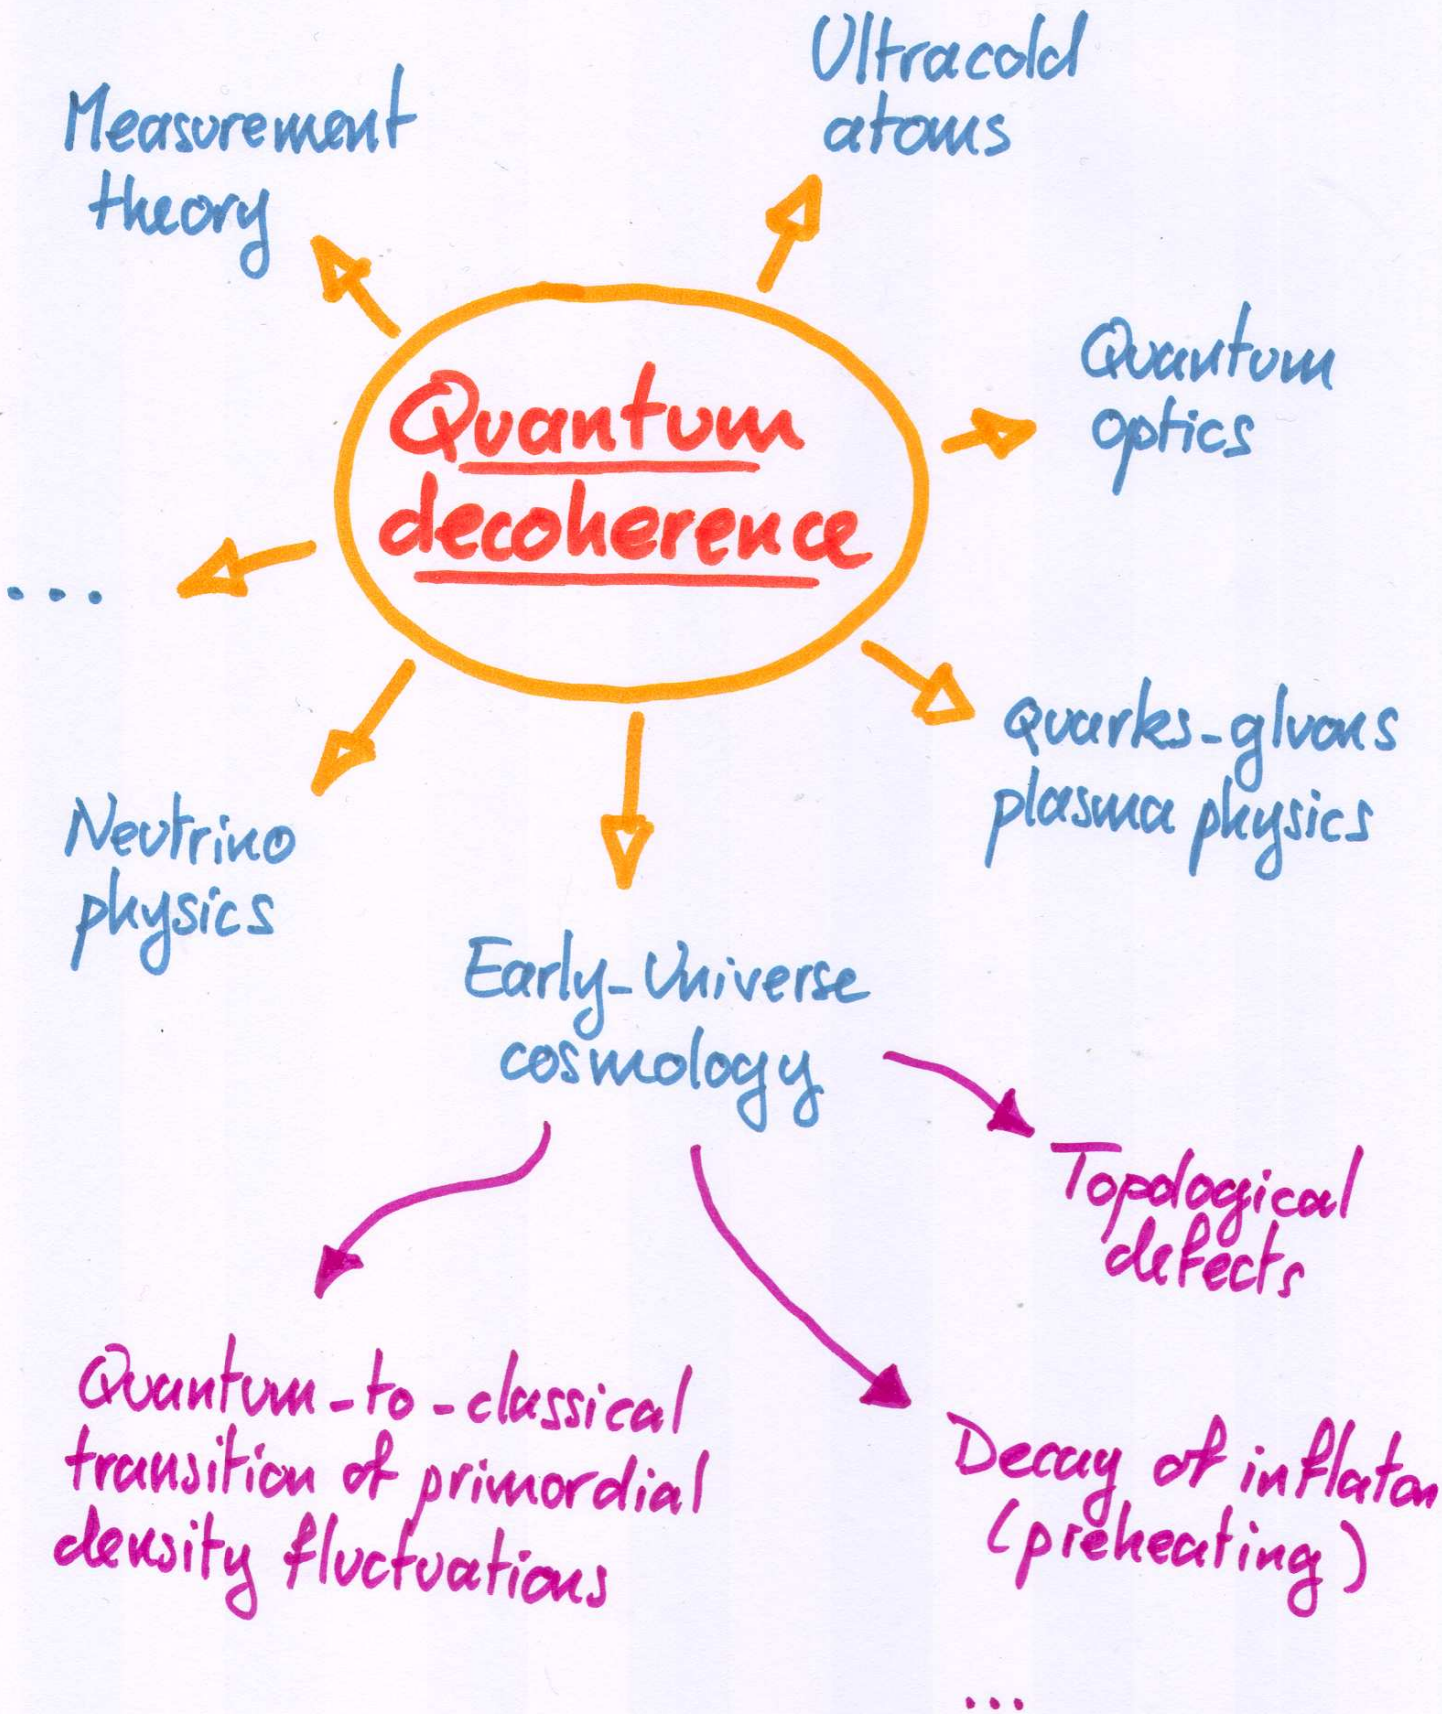 Measurement
theory
Ultracold
atoms
Quantum
optics
Quantum
decoherence
...
Quarks-gluons
plasma physics
Neutrino
physics
Early-Universe
cosmology
Topological
defects
Quantum-to-classical
transition of primordial
density fluctuations
Decay of inflaton
(preheating)
...